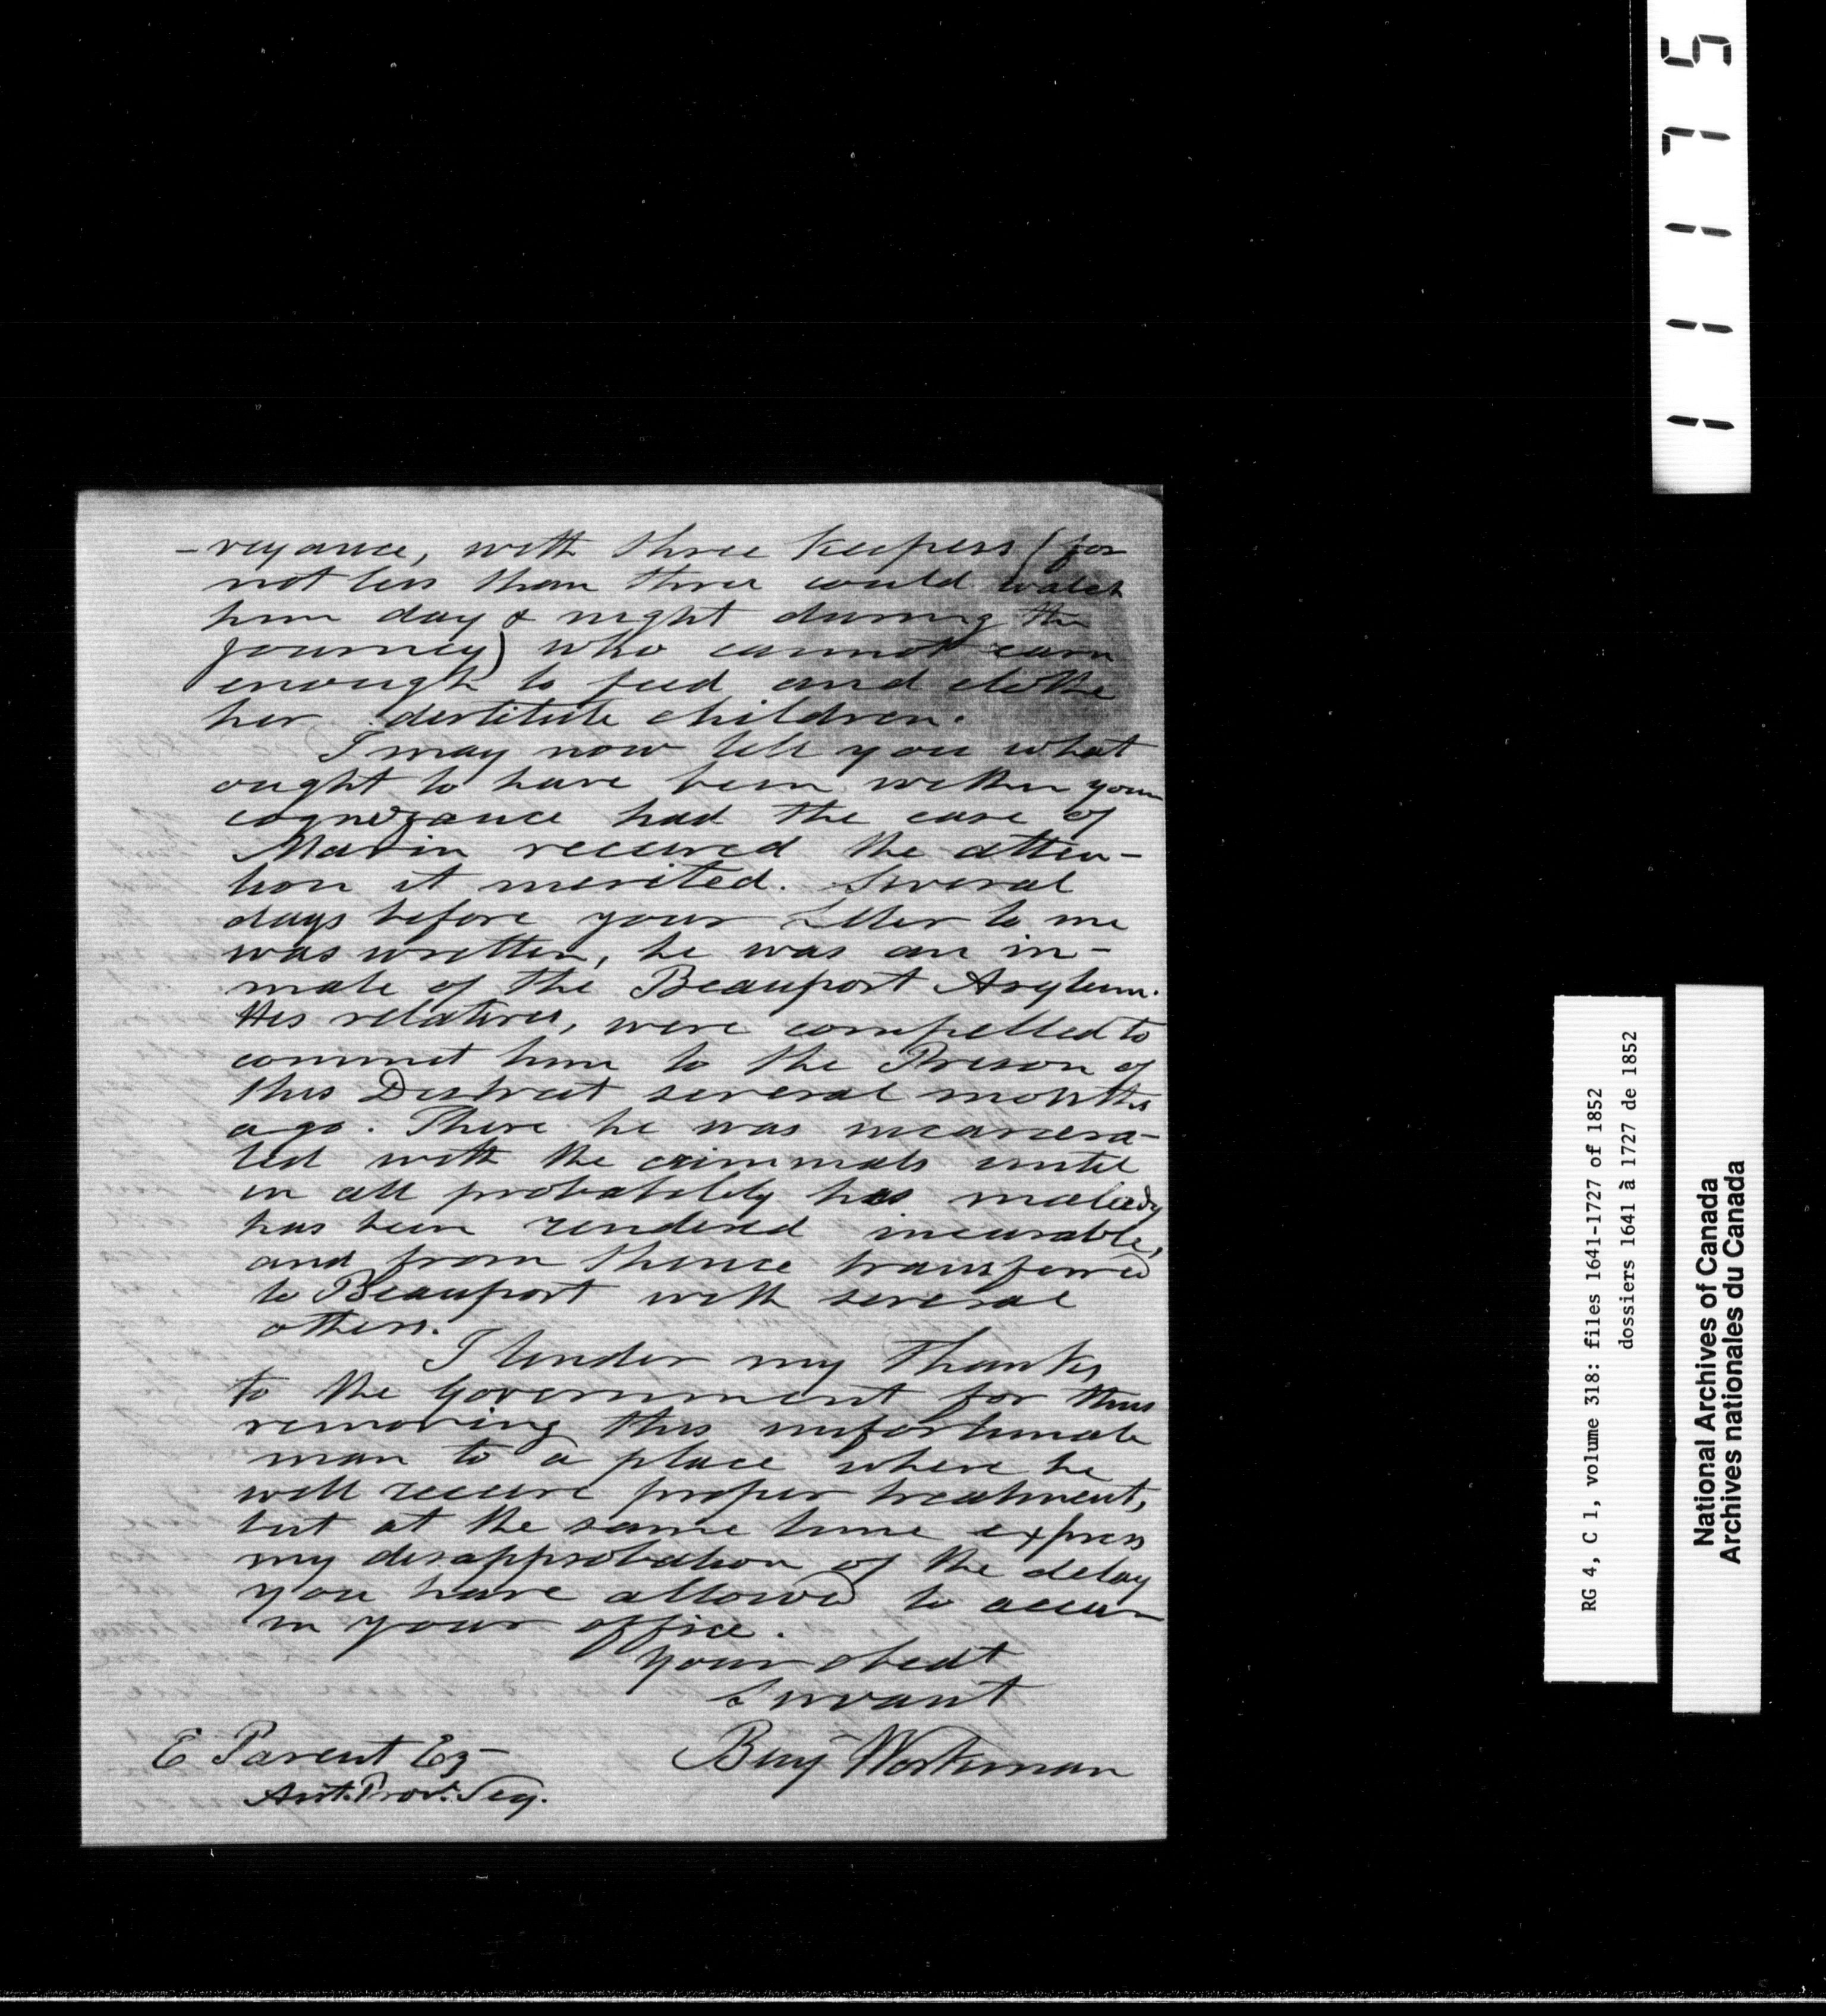 -veyance, with three keepers (for
not less than three could watch
him day & night during the
journey) who cannot earn
enough to feed and clothe
her destitute children.
I may now tell you what
ought to have been within your
cognizance had the case of
Marin received the atten-
tion it merited. Several
days before your letter to me
was written, he was an in-
mate of the Beauport Asylum.
His relatives, were compelled to
commit him to the Prison of
this District several months
ago. There he was incarcera-
ted with the criminals until
in all probability his malady
has been rendered incurable,
and from thence transferred
to Beauport with several
others.
I tender my thanks
to the Government for thus
removing this unfortunate
man to a place where he
will receive proper treatment,
but at the same time express
my disapprobation of the delay
you have allowed to occur
in your office.
Your obedt
Servant
Benj Workman
E Parent Eq
Asst. Prov. Secy.
111175
RG 4, C 1, volume 318: files 1641-1727 of 1852
dossiers 1641 à 1727 de 1852
National Archives of Canada
Archives nationales du Canada